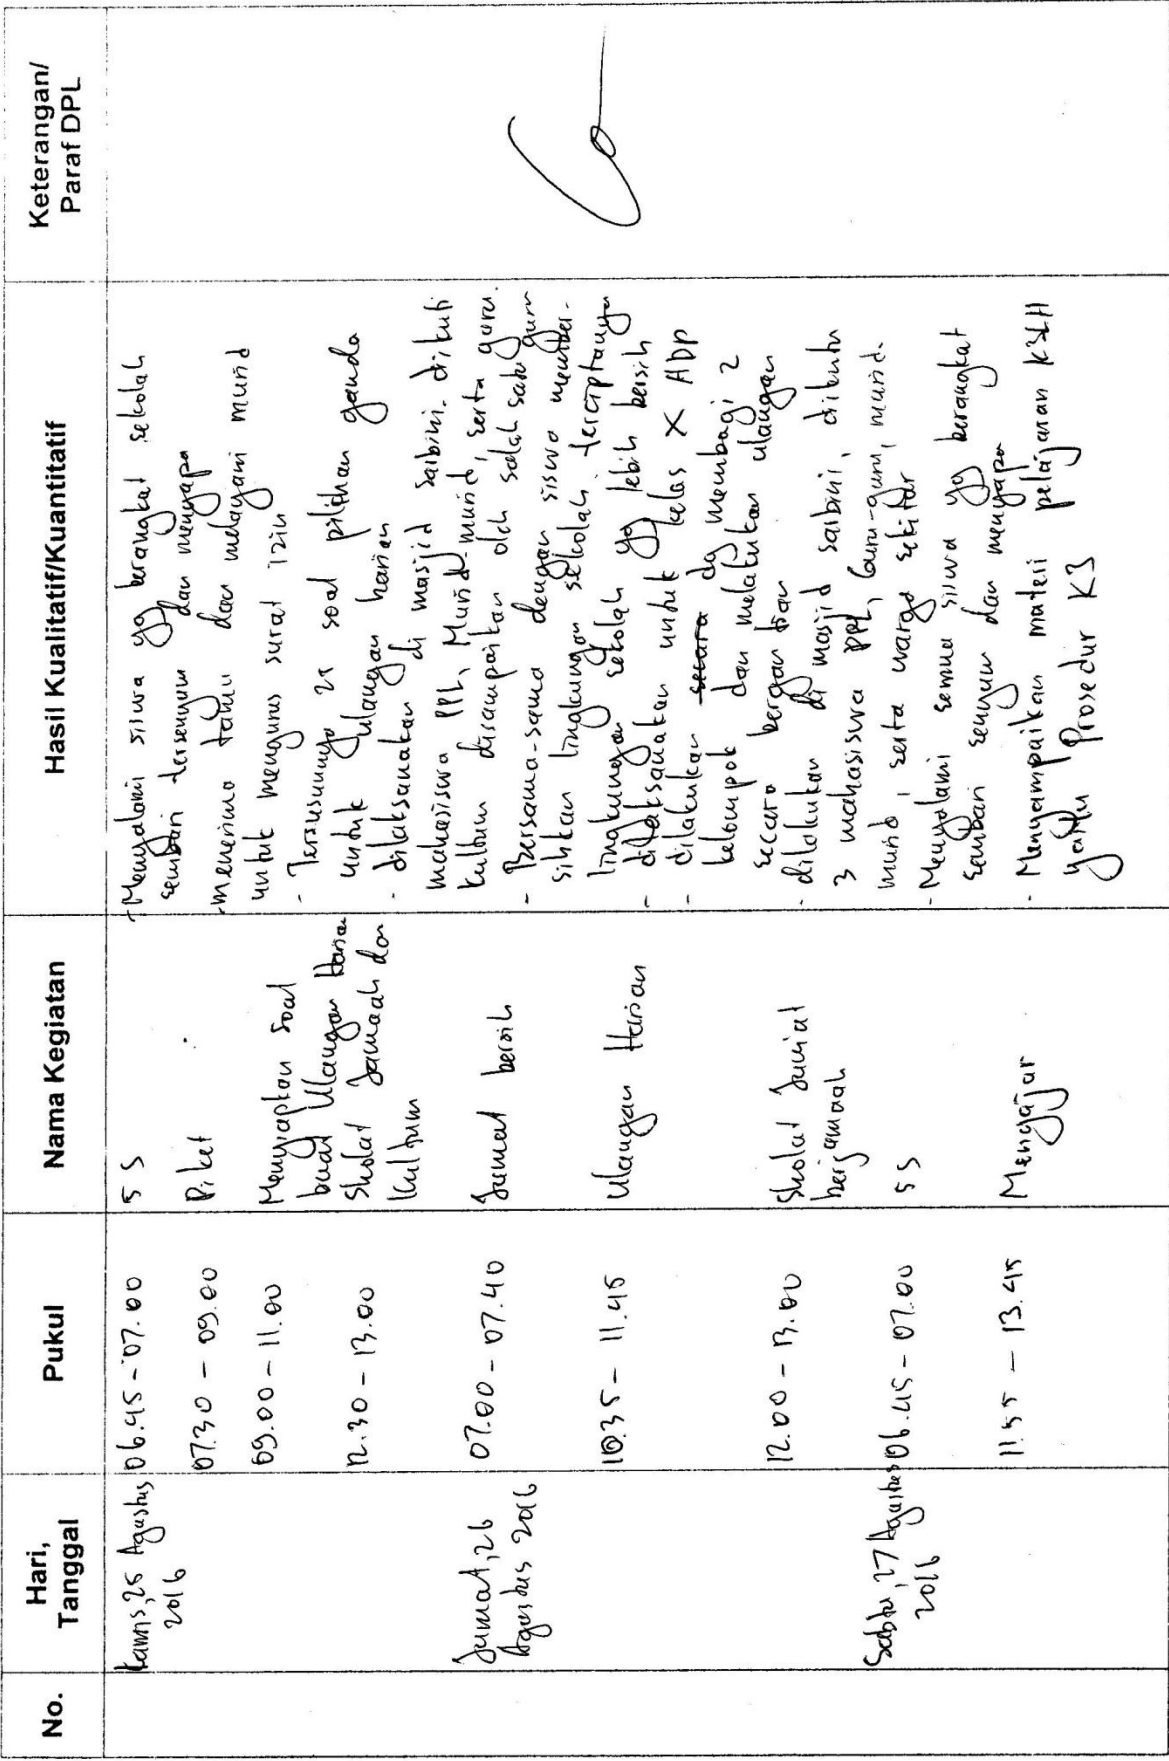 No.
Hari,
Tanggal
Pukul
Nama Kegiatan
Hasil Kualitatif/Kuantitatif
Keterangan/
Paraf DPL
Kamis, 25 Agustus
2016
06.45 - 07.00
5 S
- Menyalami siswa yg berangkat sekolah
sembari tersenyum dan menyapa
07.30 - 09.00
Piket
- menerima tamu dan melayani murid
untuk mengurus surat izin
09.00 - 11.00
Menyiapkan soal
buat Ulangan Harian
- Tersusunnya 25 soal pilihan ganda
untuk ulangan harian
12.30 - 13.00
Sholat Jamaah dan
Kultum
- dilaksanakan di masjid saibini. diikuti
mahasiswa PPL, Murid-murid, serta guru.
kultum disampaikan oleh salah satu guru
Jumat, 26
Agustus 2016
07.00 - 07.40
Jumat bersih
- Bersama-sama dengan siswa member-
sihkan lingkungan sekolah. terciptanya
lingkungan sekolah yg lebih bersih
10.35 - 11.45
Ulangan Harian
- dilaksanakan untuk kelas X ADP
- dilakukan secara dg membagi 2
kelompok dan melakukan ulangan
secara bergantian
12.00 - 13.00
Sholat Jumat
berjamaah
- dilakukan di masjid saibini, diikuti
3 mahasiswa PPL, Guru-guru, murid-
murid, serta warga sekitar
Sabtu, 27 Agustus
2016
06.45 - 07.00
5 S
- Menyalami semua siswa yg berangkat
sembari senyum dan menyapa
11.55 - 13.45
Mengajar
- Menyampaikan materi pelajaran K3LH
yaitu Prosedur K3